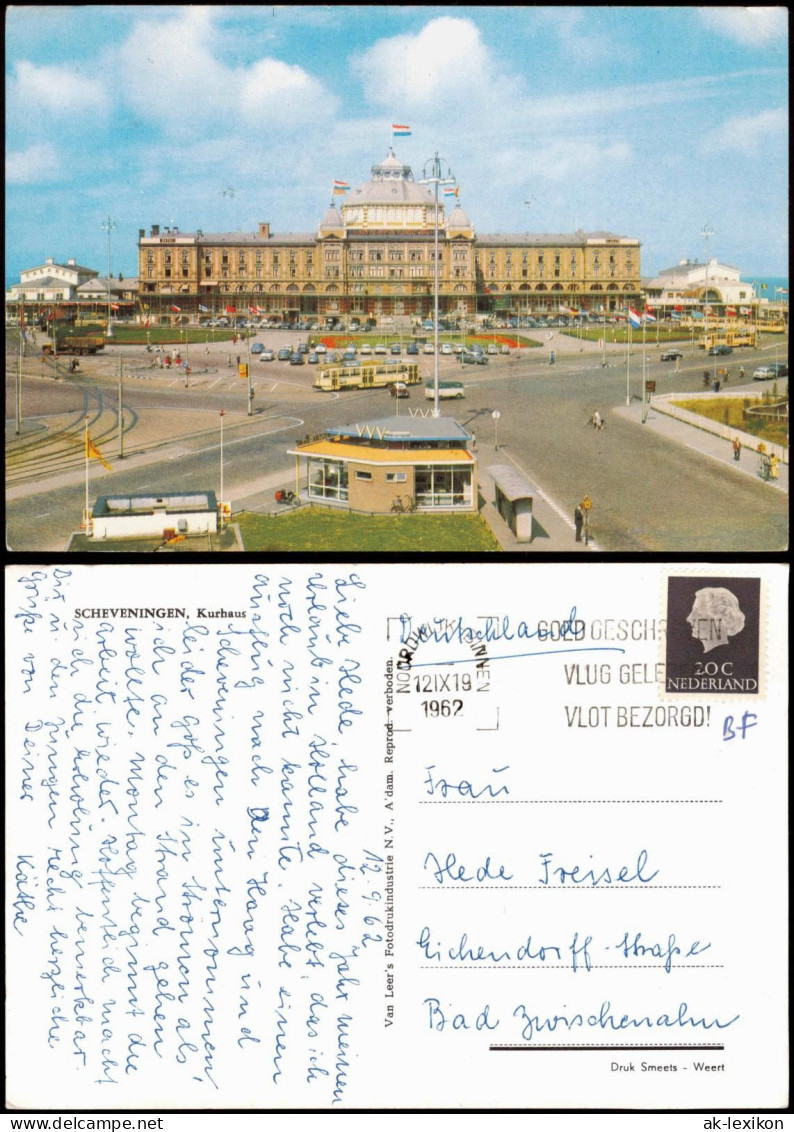 VVV
SCHEVENINGEN, Kurhaus
12.9.62
Liebe Hede, habe dieses Jahr meinen
Urlaub in Holland verlebt, das ich
noch nicht kannte. Habe einen
Ausflug nach Den Haag und
Scheveningen unternommen,
leider goß es in Strömen als
ich an den Strand gehen
wollte. Montag beginnt die
Arbeit wieder. Hoffentlich macht
sich die Erholung bemerkbar.
Dir u. den Jungen recht herzliche
Grüße von Deiner Käthe
Van Leer's Fotodrukindustrie N.V., A'dam. Reprod. verboden.
Deutschland
12 IX 19
1962
GOED GESCHREVEN
VLUG GELEZEN
VLOT BEZORGD!
20 C
NEDERLAND
BF
Frau
Hede Freisel
Eichendorff-Straße
Bad Zwischenahn
Druk Smeets - Weert
ak-lexikon